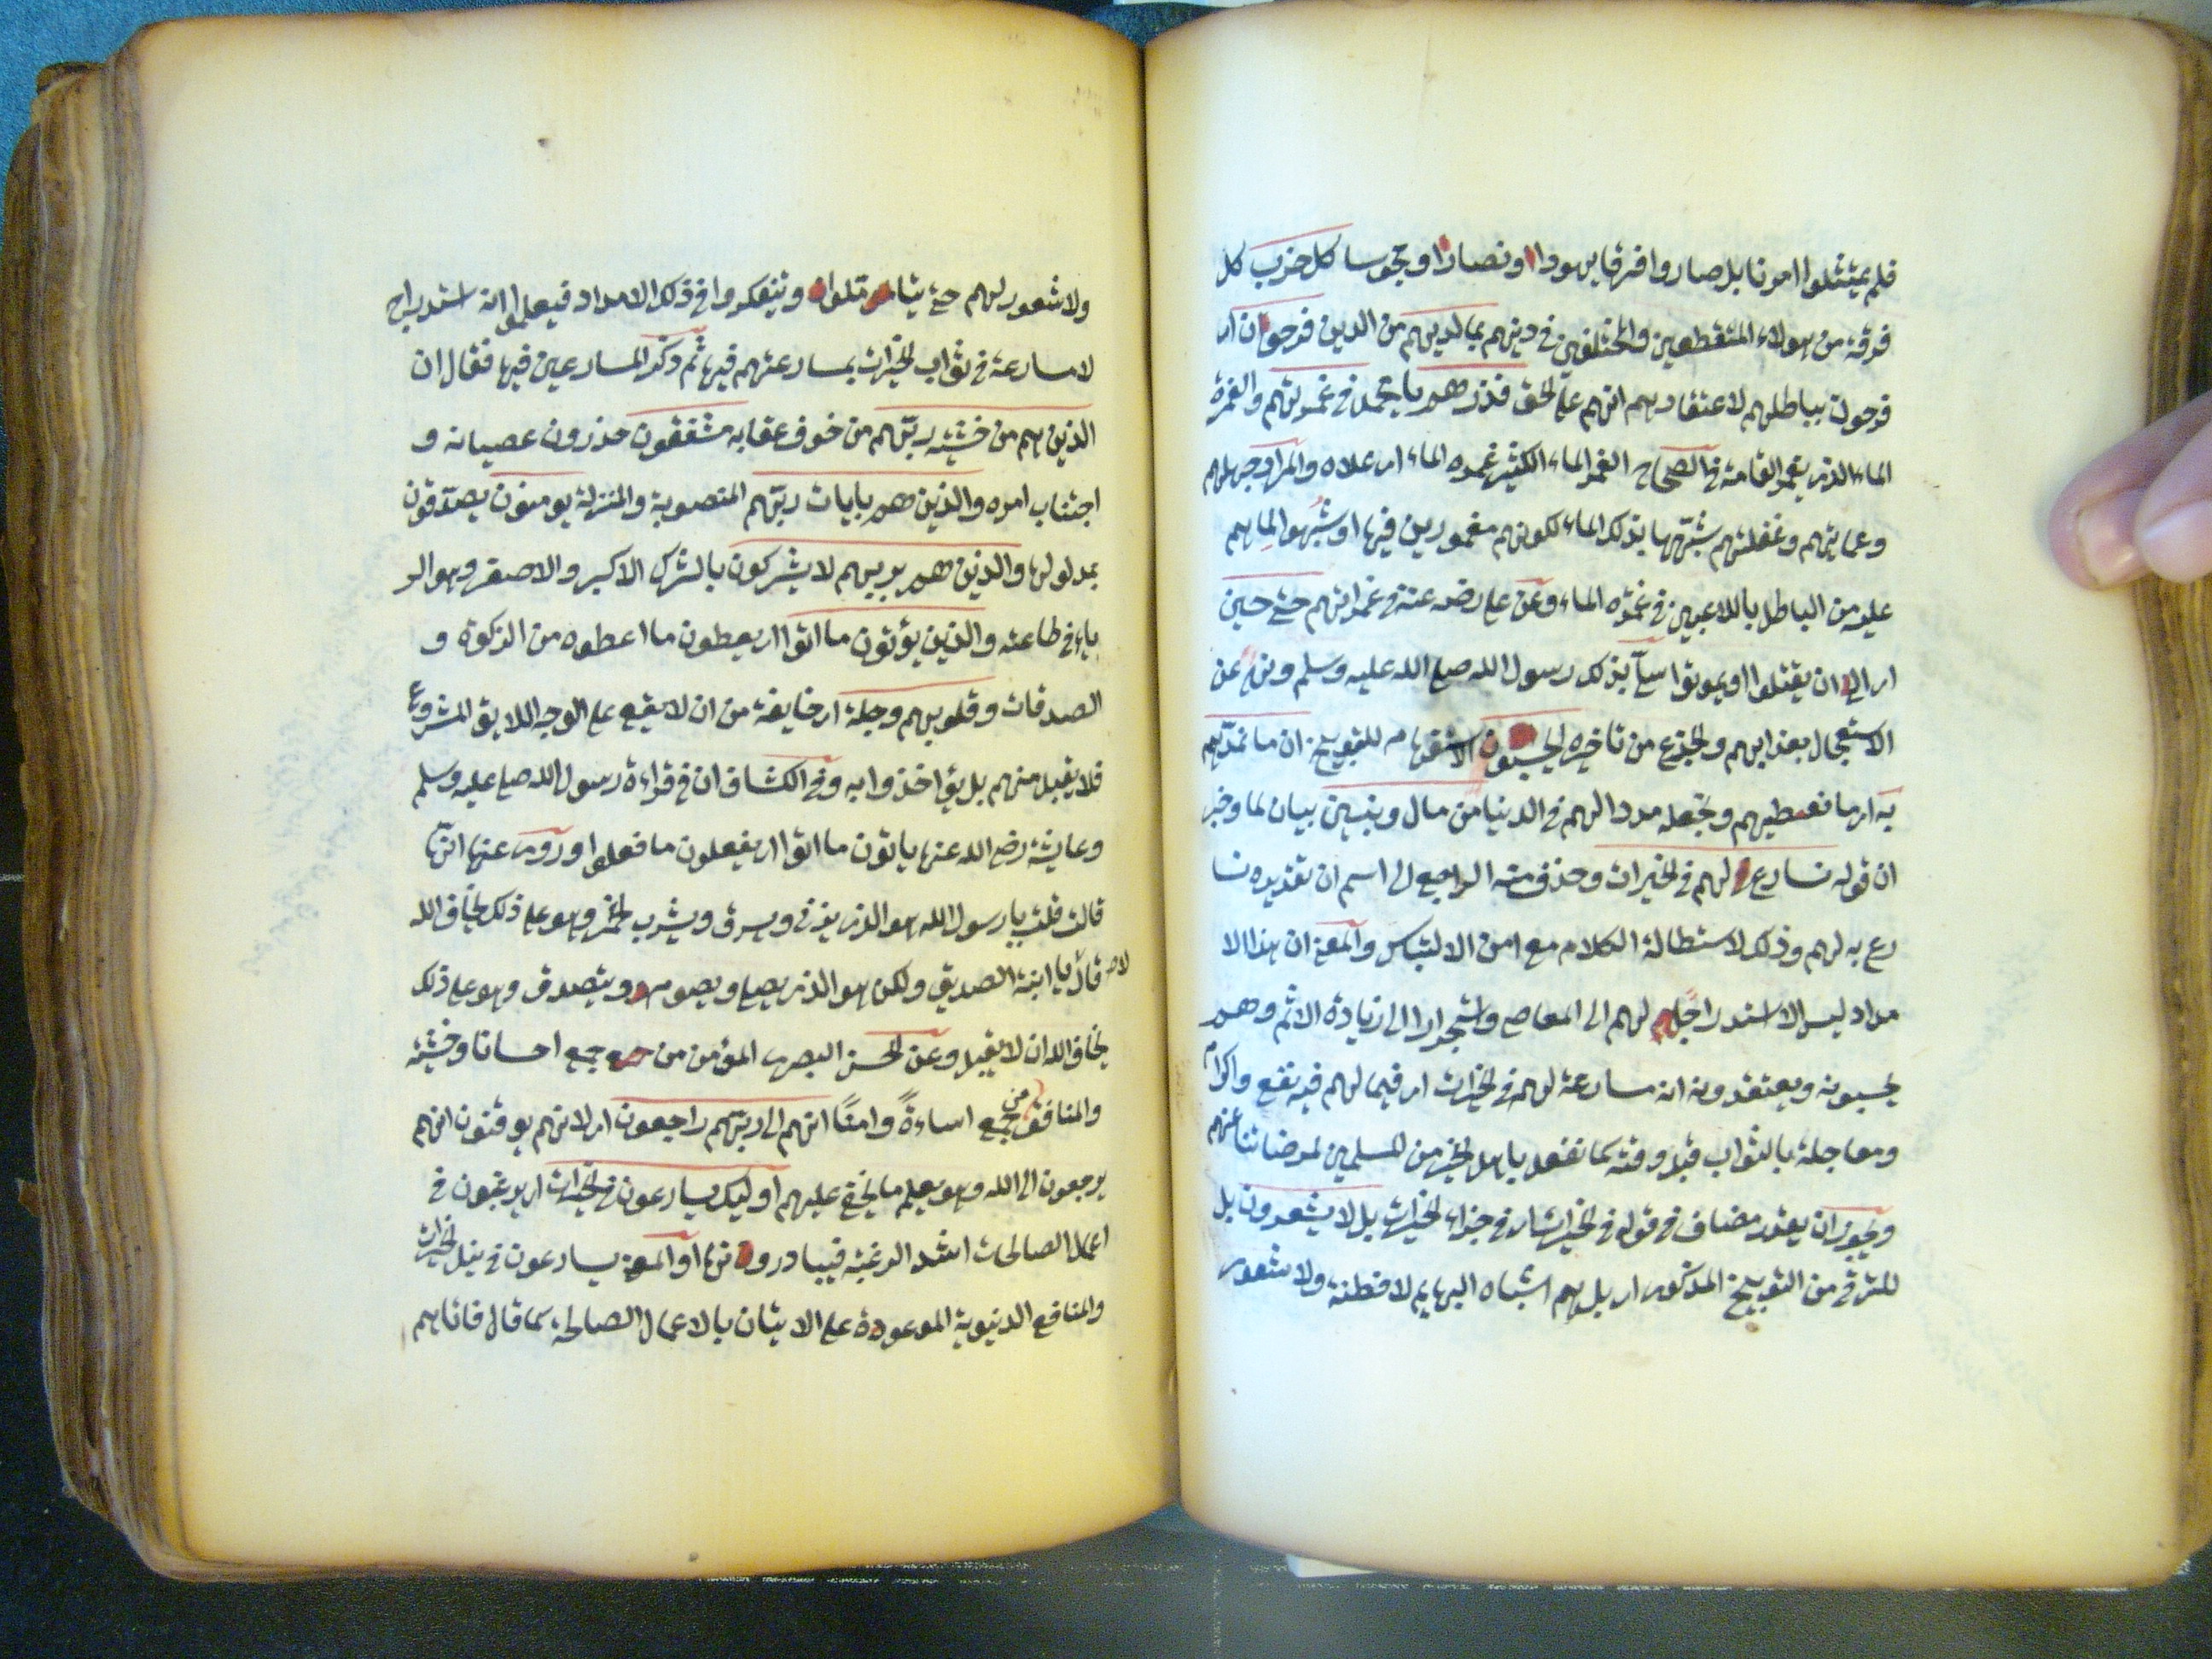 فلم يمتثلوا امرنا بل صاروا فرقا يهودا ونصارا ومجوسا كل حزب كل
فرقة من هولاء المتقطعين والمختلفين في دينهم بما لديهم من الدين فرحون ار
فرحون بباطلهم لاعتقادهم انهم على الحق فذرهم يا محمد في غمرتهم والغمرة
الماء الذى يغمر القامة في الصحاح الغمر الماء الكثير غمره الماء اى علاه والمراد جهلهم
وعمايتهم وغفلتهم شبّهها بذلك الماء لكونهم مغمورين فيها او شُبهوا لما هم
عليه من الباطل باللاعبين في غمرة الماء وعن على رضى عنه في غمراتهم حتى حين
اى الى ان يقتلوا او يموتوا سلى بذلك رسول الله صلى الله عليه وسلم ونهى عن
الاستعجال بعذابهم والجزع من تاخيره ايحسبون الاستفهام للتوبيخ ان ما نمدّهم
به اى ما نعطيهم ونجعله مددا لهم في الدنيا من مال وبنين بيان لما وخبر
ان قوله نسارع لهم في الخيرات وحذف منه الراجع الى اسم ان تقديره نسا
رع به لهم وذلك لاستطالة الكلام مع امن الالتباس والمعنى ان هذا الا
مداد ليس الا استدراجا لهم الى المعاصى واستجرارا الى زيادة الاثم وهم
يحسبونه ويعتقدونه انه مسارعة لهم في الخيرات اى فيما لهم فيه نفع واكرام
ومعاجلة بالثواب قبل وقته كما نفعل باهل الخير من المسلمين لمرضاتنا عنهم
ويجوز ان يقدر مضاف في قوله في الخيرات اى في جزاء الخيرات بل لا يشعرون بل
للترقى من التوبيخ المذكور اى بل هم اشباه البهايم لا فطنة ولا شعور
ولا شعور لهم حتى يتاملوا ويتفكروا في ذلك الامداد فيعلموا انه استدراج
لا مسارعة في ثواب الخيرات بمسارعتهم فيها ثم ذكر المسارعين فيها فقال ان
الذين هم من خشية ربّهم من خوف عقابه مشفقون حذرون عصيانه و
اجتناب امره والذين هم بايات ربّهم المنصوبة والمنزلة يومنون يصدّقون
بمدلولها والذين هم بربهم لا يشركون بالشرك الاكبر والاصغر وهو الر
ياء في طاعته والذين يؤتون ما اتوا اى يعطون ما اعطوه من الزكوة و
الصدقات وقلوبهم وجلة اى خايفة من ان لا يقع على الوجه اللايق المشروع
فلا يقبل منهم بل يؤاخذوا به وفي الكشاف ان في قراءة رسول الله صلى عليه وسلم
وعايشة رضى الله عنها ياتون ما اتوا اى يفعلون ما فعلوا وروى عنها انها
قالت قلت يا رسول الله هو الذى يزنى ويسرق ويشرب الخمر وهو على ذلك يخاف الله
قال لا يا ابنة الصديق ولكن هو الذى يصلى ويصوم ويتصدق وهو على ذلك
يخاف الله ان لا يقبل وعن الحسن البصرى المؤمن من جمع احسانا وخشية
والمنافق من جمع اساءةً وامنًا انهم الى ربّهم راجعون اى لانهم يوقنون انهم
يرجعون الى الله وهو يعلم ما يخفى عليهم اوليك يسارعون في الخيرات اى يرغبون في
اعمال الصالحات اشد الرغبة فيبادرونها او المعنى يسارعون في نيل الخيرات
والمنافع الدنيوية الموعودة على الاتيان بالاعمال الصالحة كما قال فاتاهم